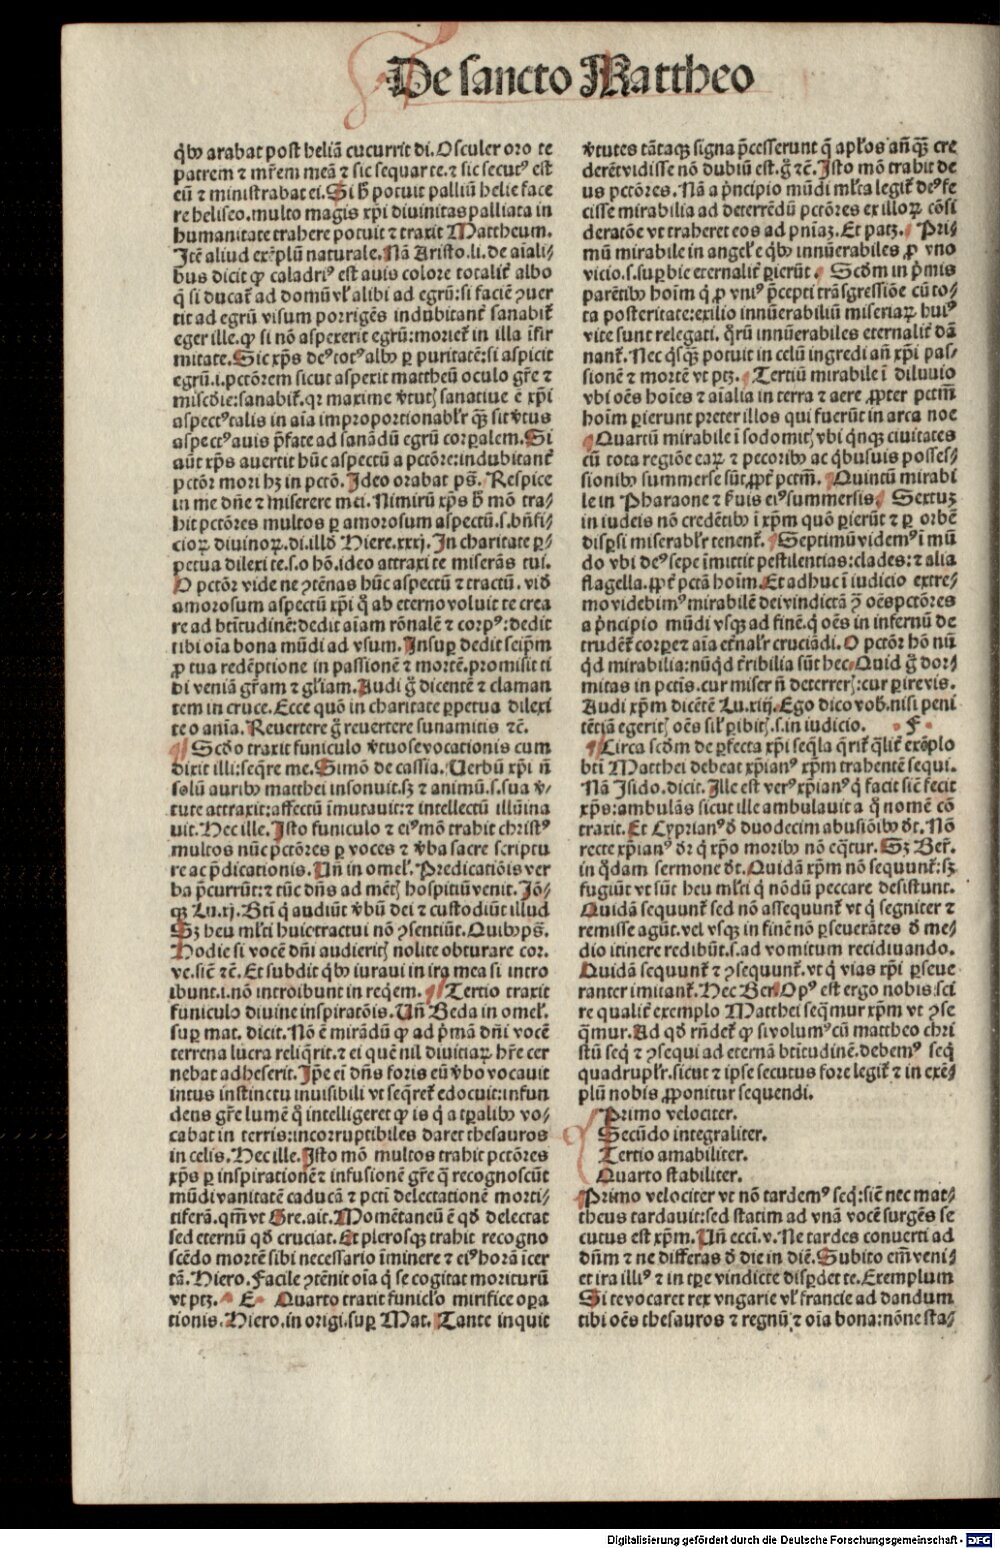 De sancto Mattheo
q̇bꝰ arabat post heliā cucurrit di. Osculer oro te
patrem ⁊ mr̄em meā ⁊ sic sequar te. ⁊ sic secutꝰ est
eū ⁊ ministrabat ei. Si h̄ potuit palliū helie face
re heliseo. multo magis xp̄i diuinitas palliata in
humanitate trahere potuit ⁊ traxit Mattheum.
Itē aliud exēplū naturale. Nā Aristo. li. de aīali/
bus dicit ꝙ caladriꝰ est auis colore totalit̄ albo
q̄ si ducat̄ ad domū vl̓ alibi ad egrū: si faciē ꝯuer
tit ad egrū visum porrigēs indubitant̄ sanabit̄
eger ille. ꝙ si nō aspexerit egrū: moriet̄ in illa īfir
mitate. Sic xp̄s deꝰ totꝰ albꝰ ꝑ puritatē: si aspicit
egrū. i. pctōrem sicut aspexit mattheū oculo gr̄e ⁊
mi̅scd̓ie: sanabit̄. qr maxime v̓tutꝭ sanatiue ē xp̄i
aspectꝰ talis in aīa improportionabl̓r qꝫ sit v̓tus
aspectꝰ auis p̄fate ad sanādū egrū corꝑalem. Si
aūt xp̄s auertit hūc aspectū a pctōre: indubitant̄
pctōr mori hꝫ in pctō. Ideo orabat ps̄. Respice
in me dn̄e ⁊ miserere mei. Nimirū xp̄s h̄ mō tra/
hit pctōres multos ꝑ amorosum aspectū. s. bn̄fi/
cioꝝ diuinoꝝ. di. illō Hiere. xxxj. In charitate ꝑ/
petua dilexi te. s. o hō. ideo attraxi te miserās tui.
O pctōr vide ne ꝯtēnas hūc aspectū ⁊ tractū. vid̓
amorosum aspectū xp̄i q̇ ab eterno voluit te crea
re ad bt̄itudinē: dedit aīam rōnalē ⁊ corpꝰ: dedit
tibi oīa bona mūdi ad vsum. Insuꝑ dedit seip̄m
ꝓ tua redēptione in passionē ⁊ mortē. promisit ti
bi veniā gr̄am ⁊ gl̓iam. Audi g̓ dicentē ⁊ claman
tem in cruce. Ecce quō in charitate ꝑpetua dilexi
te o anīa. Reuertere g̓ reuertere sunamitis ⁊c̄.
Scd̓o traxit funiculo v̓tuose vocationis cum
dixit illi: seq̄re me. Simō de cassia. Verbū xp̄i n̄
solū auribꝰ matthei insonuit. sꝫ ⁊ animū. s. sua v̓/
tute attraxit: affectū īmutauit: ⁊ intellectū illūina
uit. Hec ille. Isto funiculo ⁊ eiꝰ mō trahit christꝰ
multos nūc pctōres ꝑ voces ⁊ v̓ba sacre scriptu
re ac p̄dicationis. Vn̄ in omel̓. Predicatiōis ver
ba p̄currūt: ⁊ tūc dn̄s ad mētꝭ hospitiū venit. Iō/
qꝫ Lu. xj. Bt̄i q̇ audiūt v̓bū dei ⁊ custodiūt illud
Sꝫ heu ml̓ti huic tractui nō ꝯsentiūt. Quibꝰ ps̄.
Hodie si vocē dn̄i audieritꝭ nolite obturare cor.
ve. sic̄ ⁊c̄. Et subdit q̇bꝰ iuraui in ira mea si intro
ibunt. i. nō introibunt in reqem. Tertio traxit
funiculo diuine inspiratōis. Vn̄ Beda in omel̓.
suꝑ mat. dicit. Nō ē mirādū ꝙ ad p̓mā dn̄i vocē
terrena lucra reliq̇rit. ⁊ ei quē nil diuitiaꝝ hr̄e cer
nebat adheserit. Ip̄e ei̅ dn̄s foris eū v̓bo vocauit
intus instinctu inuisibili vt seq̄ret̄ edocuit: infun
dens gr̄e lumē q̇ intelligeret ꝙ is q̇ a tꝑalibꝰ vo/
cabat in terris: incorruptibiles daret thesauros
in celis. Hec ille. Isto mō multos trahit pctōres
xp̄s ꝑ inspirationē ⁊ infusionē gr̄e q̄ recognoscūt
mūdi vanitatē caducā ⁊ pcti̅ delectationē morti/
tiferā. qm̄ vt Gre. ait. Momētaneū ē qd̓ delectat
sed eternū qd̓ cruciat. Et plerosqꝫ trahit recogno
scēdo mortē sibi necessario īminere ⁊ eiꝰ horā īcer
tā. Hiero. Facile ꝯtēnit oīa q̇ se cogitat moriturū
vt ptꝫ. E Quarto traxit funicl̓o mirifice oꝑa
tionis. Hiero. in origi. suꝑ Mat. Tante inquit
v̓tutes tātaqꝫ signa p̄cesserunt q̄ apl̓os an̄ qꝫ cre
derēt vidisse nō dubiū est. g̓ ⁊c̄. Isto mō trahit de
us pctōres. Nā a p̓ncipio mūdi ml̓ta legit̄ deꝰ fe
cisse mirabilia ad deterrēdū pctōres ex illoꝝ cōsi
deratōe vt traheret eos ad pn̄iaꝫ. Et patꝫ. Pri/
mū mirabile in angel̓ e q̇bꝰ innūerabiles ꝓ vno
vicio. s. suꝑbie eternalit̄ ꝑierūt. Scd̓m in p̓mis
parētibꝰ hoīm q̇ ꝓ vniꝰ p̄cepti trāsgressiōe cū to/
ta posteritate: exilio innūerabiliū miseriaꝝ huiꝰ
vite sunt relegati. q̄rū innūerabiles eternalit̄ dā
nant̄. Nec q̇sqꝫ potuit in celū ingredi an̄ xp̄i pas/
sionē ⁊ mortē vt ptꝫ. Tertiū mirabile ī diluuio
vbi oēs hoīes ⁊ aīalia in terra ⁊ aere ꝓpter pctm̄
hoīm ꝑierunt preter illos qui fuerūt in arca noe
Quartū mirabile ī sodomitꝭ vbi q̇nqꝫ ciuitates
cū tota regiōe eaꝝ ⁊ pecoribꝰ ac q̇busuis posses/
sionibꝰ summerse sūt ꝓpt̄ pctm̄. Quintū mirabi
le in Pharaone ⁊ ẜuis eiꝰ summersis. Sextuꝫ
in iudeis nō credētibꝰ ī xp̄m quō ꝑierūt ⁊ ꝑ orbē
disꝑsi miserabl̓r tenent̄. Septimū videmꝰ ī mū
do vbi deꝰ sepe īmittit pestilentias: clades: ⁊ alia
flagella. ꝓpt̄ pctā hoīm. Et adhuc ī iudicio extre/
mo videbimꝰ mirabilē dei vindictā ꝯ̄ oēs pctōres
a p̓ncipio mūdi vsqꝫ ad finē. q̇ oēs in infernū de
trudēt̄ corꝑe ⁊ aīa et̓nal̓r cruciādi. O pctōr hō nū
q̇d mirabilia: nūq̇d t̓ribilia sūt hec. Quid g̓ dor/
mitas in pctīs. cur miser n̄ deterrerꝭ: cur ꝑire vis.
Audi xp̄m dicētē Lu. xiij. Ego dico vob. nisi peni
tētiā egeritꝭ oēs sil̓ ꝑibitꝭ. s. in iudicio. F
Circa scd̓m de ꝑfecta xp̄i seq̄la q̄rit̄ q̄lit̄ exēplo
bt̄i Matthei debeat xp̄ianꝰ xp̄m trahentē sequi.
Nā Isido. dicit. Ille est verꝰ xp̄ianꝰ q̇ facit sic̄ fecit
xp̄s: ambulās sicut ille ambulauit a q̇ nomē cō
traxit. Et Cyprianꝰ d̓ duodecim abusiōibꝰ d̄t. Nō
recte xp̄ianꝰ dr̄ q̇ xp̄o moribꝰ nō eq̄tur. Sꝫ Ber̄.
in q̇dam sermone d̄t. Quidā xp̄m nō sequunt̄: sꝫ
fugiūt vt sūt heu ml̓ti q̇ nōdū peccare desistunt.
Quidā sequunt̄ sed nō assequunt̄ vt q̇ segniter ⁊
remisse agūt. vel vsqꝫ in finē nō ꝑseuerātes d̓ me/
dio itinere redibūt. s. ad vomitum recidiuando.
Quidā sequunt̄ ⁊ ꝯsequunt̄. vt q̇ vias xp̄i ꝑseue
ranter imitant̄. Hec Ber. Opꝰ est ergo nobis sci
re qualit̄ exemplo Matthei seq̄mur xp̄m vt ꝯse
q̄mur. Ad qd̓ rn̄det̄ ꝙ si volumꝰ cū mattheo chri
stū seq̇ ⁊ ꝯsequi ad eternā bt̄itudinē. debemꝰ seq̇
quadrupl̓r. sicut ⁊ ipse secutus fore legit̄ ⁊ in exē/
plū nobis ꝓponitur sequendi.
Primo velociter.
Secūdo integraliter.
Tertio amabiliter.
Quarto stabiliter.
Primo velociter vt nō tardemꝰ seq̇: sic̄ nec mat/
theus tardauit: sed statim ad vnā vocē surgēs se
cutus est xp̄m. Vn̄ ecci. v. Ne tardes conuerti ad
dn̄m ⁊ ne differas d̓ die in diē. Subito em̄ veni/
et ira illiꝰ ⁊ in tꝑe vindicte disꝑdet te. Exemplum
Si te vocaret rex vngarie vl̓ francie ad dandum
tibi oēs thesauros ⁊ regnū ⁊ oīa bona: nōne sta/
Digitalisierung gefördert durch die Deutsche Forschungsgemeinschaft - DFG